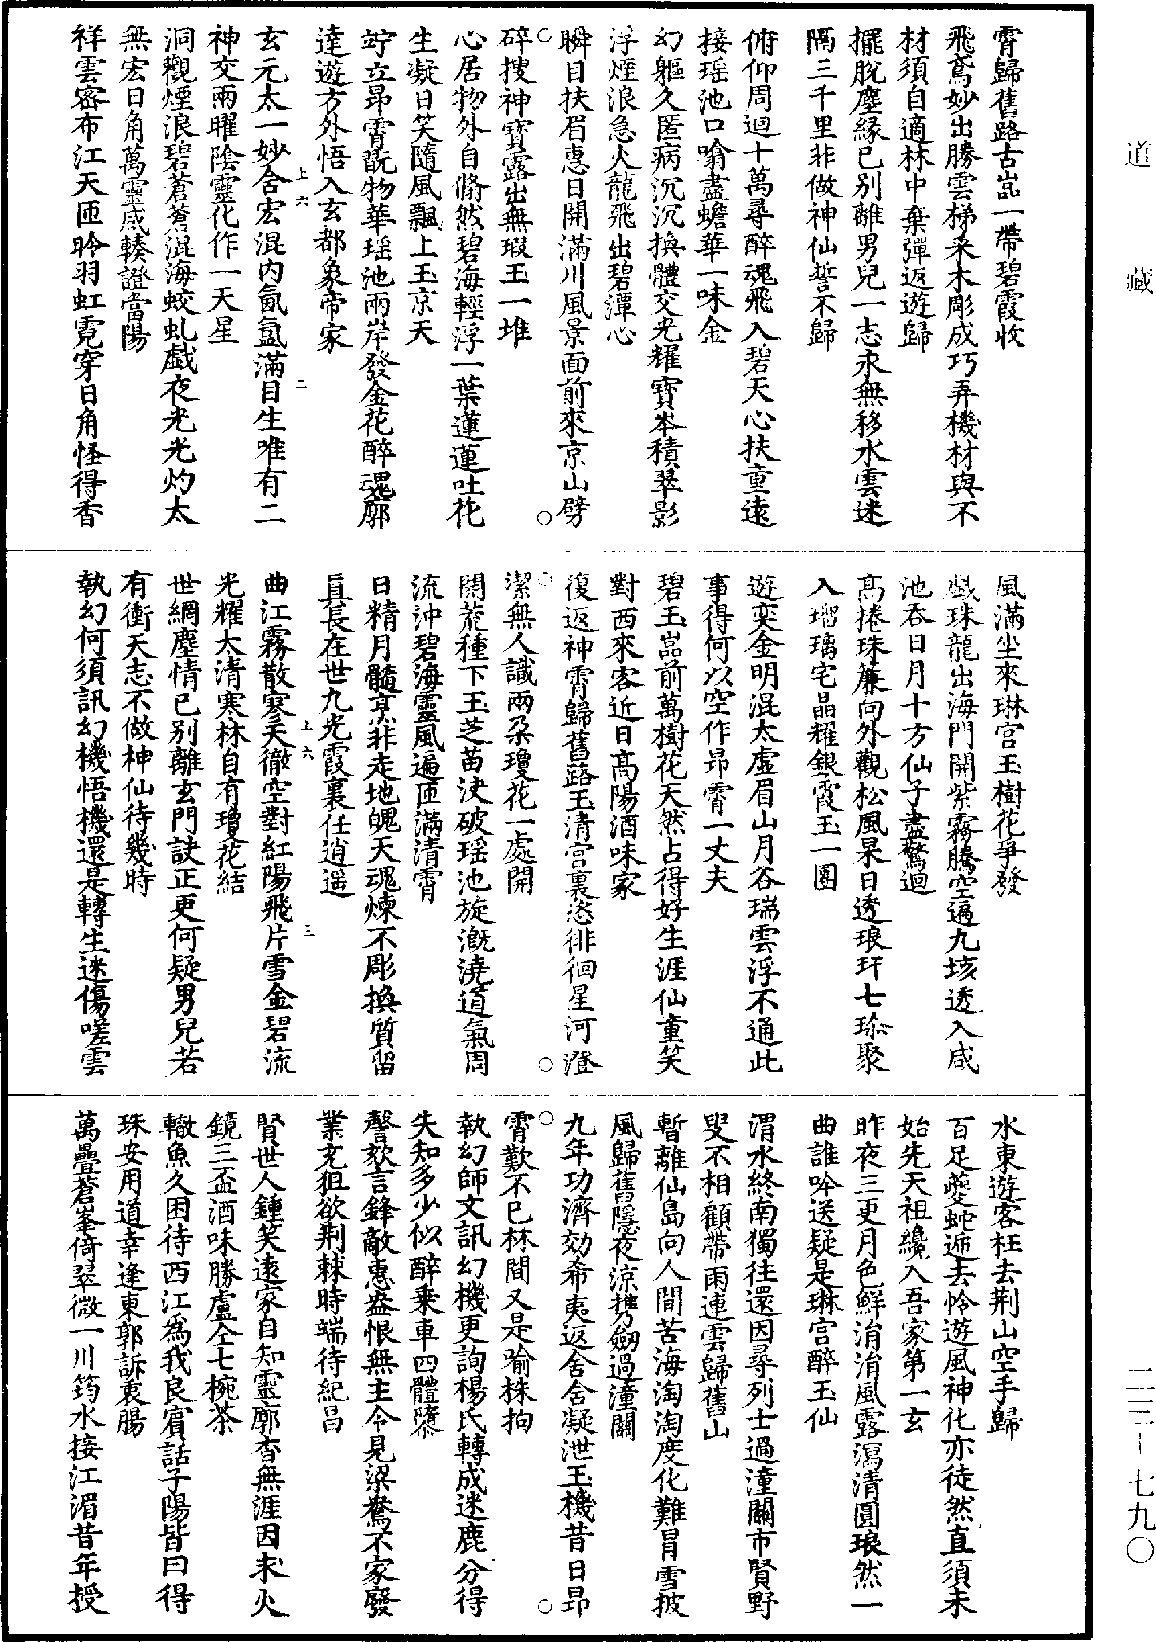 道藏
霄歸舊路古嵓一帶碧霞收
飛鳶妙出勝雲梯釆木彫成巧弄機材與不
材須自適林中棄彈返遊歸
擺脫塵緣已别離男兒一志永無移水雲迷
隔三千里非做神仙誓不歸
俯仰周迴十萬尋醉魂飛入碧天心扶重遠
接瑶池口喻盡蟾華一味金
幻軀久匿病沉沉換體交光耀寶岑積翠影
浮煙浪急火龍飛出碧潭心
瞬目扶眉惠日開滿川風景面前來京山劈
碎搜神寳露出無瑕玉一堆
心居物外自翛然碧海輕浮一葉蓮蓮吐花
生凝日笑隨風飄上玉京天
竚立昂霄翫物華瑶池兩岸發金花醉魂廓
達遊方外悟入玄都象帝家
上六 二
玄元太一妙含宏混内氤氳滿目生唯有二
神交兩曜陰靈化作一天星
洞觀煙浪碧蒼蒼混海蛟虬戲夜光光灼太
無宏日角萬靈感輳證當陽
祥雲密布江天匝昤羽虹霓穿日角怪得香
風滿坐來琳宫玉樹花爭發
戲珠龍出海門開紫霧騰空逼九垓透入咸
池吞日月十方仙子盡驚迴
髙捲珠簾向外觀松風杲日透琅玕七珎聚
入瑠璃宅晶耀銀霞玉一團
遊奕金明混太虚眉山月谷瑞雲浮不通此
事得何以空作昂霄一丈夫
碧玉嵓前萬樹花天然占得好生涯仙童笑
對西來客近日髙陽酒味家
復返神霄歸舊路玉清宫裏恣徘徊星河澄
潔無人識兩朶瓊花一處開
開荒種下玉芝苗決破瑶池旋溉澆道氣周
流沖碧海靈風遍匝滿清霄
日精月髓烹非走地魄天魂煉不彫換質留
真長在世九光霞裏任逍遥
上六 三
曲江霧散寒天徹空對紅陽飛片雪金碧流
光耀太清寒林自有瓊花結
世網塵情已别離玄門訣正更何疑男兒若
有衝天志不做神仙待幾時
執幻何須訊幻機悟機還是轉生迷傷嗟雲
水東遊客枉去荆山空手歸
百足夔蚿遞去怜遊風神化亦徒然直須未
始先天祖纔入吾家第一玄
昨夜三更月色鮮涓涓風露瀉清圓琅然一
曲誰吟送疑是琳宫醉玉仙
渭水終南獨往還因尋列士過潼關市賢野
叟不相顧帶雨連雲歸舊山
暫離仙島向人間苦海淘淘度化難冒雪披
風歸舊隱夜涼攜劒過潼關
九年功濟効希夷返舍舍凝泄玉機昔日昂
霄歎不已林間又是喻株拘
執幻師文訊幻機更詢楊氏轉成迷鹿分得
失知多少似醉乗車四體隳
謦欬言鋒敵惠盎恨無主令見梁鴦不家廢
業充狙欲荆棘時端待紀昌
賢世人鍾笑遠家自知靈廓杳無涯因求火
鏡三盃酒味勝盧仝七椀茶
轍魚久困待西江爲我良賓話子陽皆曰得
珠安用道幸逢東郭訴衷腸
萬疊蒼峯倚翠微一川筠水接江湄昔年授
二三—七九〇